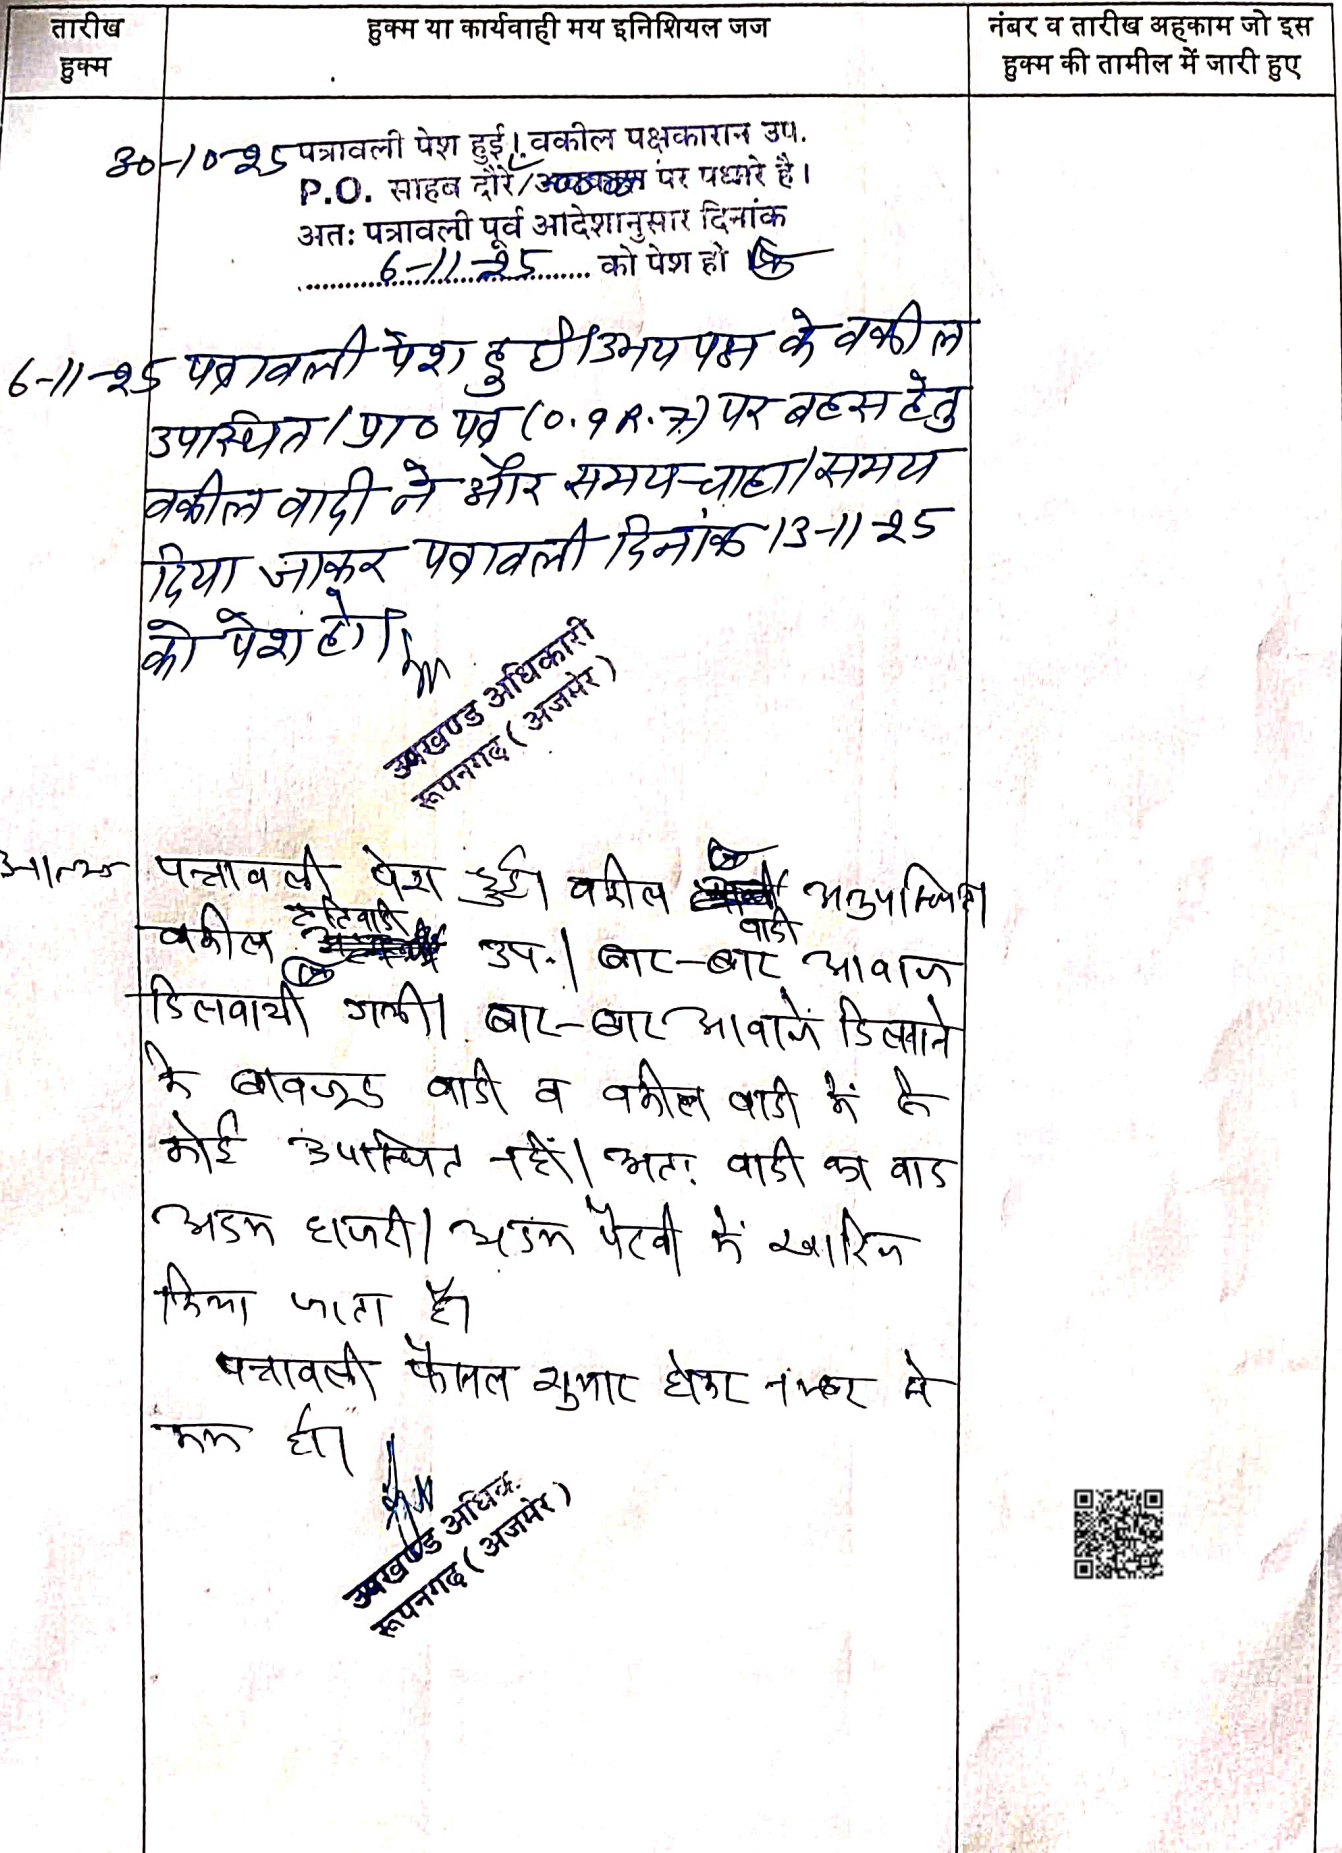 तारीख
हुक्म
हुक्म या कार्यवाही मय इनिशियल जज
नंबर व तारीख अहकाम जो इस
हुक्म की तामील में जारी हुए
30-10-25 पत्रावली पेश हुई। वकील पक्षकारान उप.
P.O. साहब दौरे/ पर पधारे है।
अतः पत्रावली पूर्व आदेशानुसार दिनांक
6-11-25 को पेश हो
6-11-25 पत्रावली पेश हुई। उभय पक्ष के वकील
उपस्थित। प्रा० पत्र (O. 9 R. 7) पर बहस हेतु
वकील वादी ने और समय चाहा। समय
दिया जाकर पत्रावली दिनांक 13-11-25
को पेश हो।
उपखण्ड अधिकारी
रूपनगढ़ (अजमेर)
पत्रावली पेश हुई। वकील वादी अनुपस्थित।
वकील प्रतिवादी उप.। बार-बार आवाज
दिलवायी गयी। बार-बार आवाजें दिलवाने
के बावजूद वादी व वकील वादी में से
कोई उपस्थित नहीं। अतः वादी का वाद
अदम हाजरी। अदम पैरवी में खारिज
किया जाता है।
पत्रावली फैसल शुमार होकर नम्बर से
कम हो।
उपखण्ड अधिक
रूपनगढ़ (अजमेर)